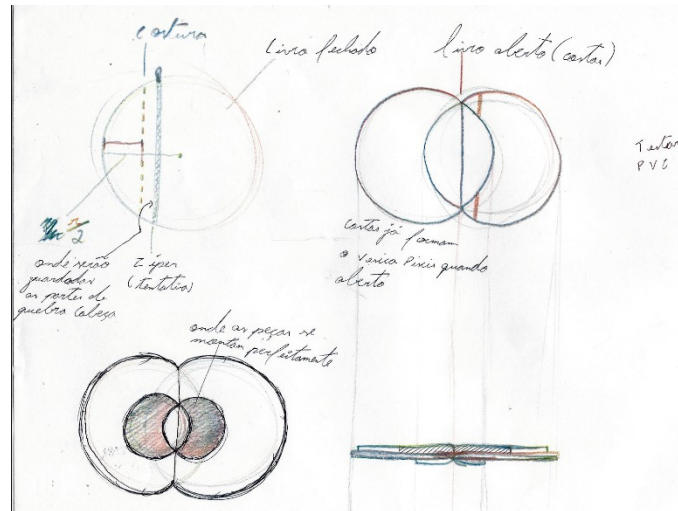 costura
livro fechado
livro aberto (costas)
Testar
PVC
r/2
onde serão
guardadas
as partes de
quebra cabeça
ziper
(tentativa)
costas já formam
o Vesica Piscis quando
aberto
onde as peças se
montam perfeitamente